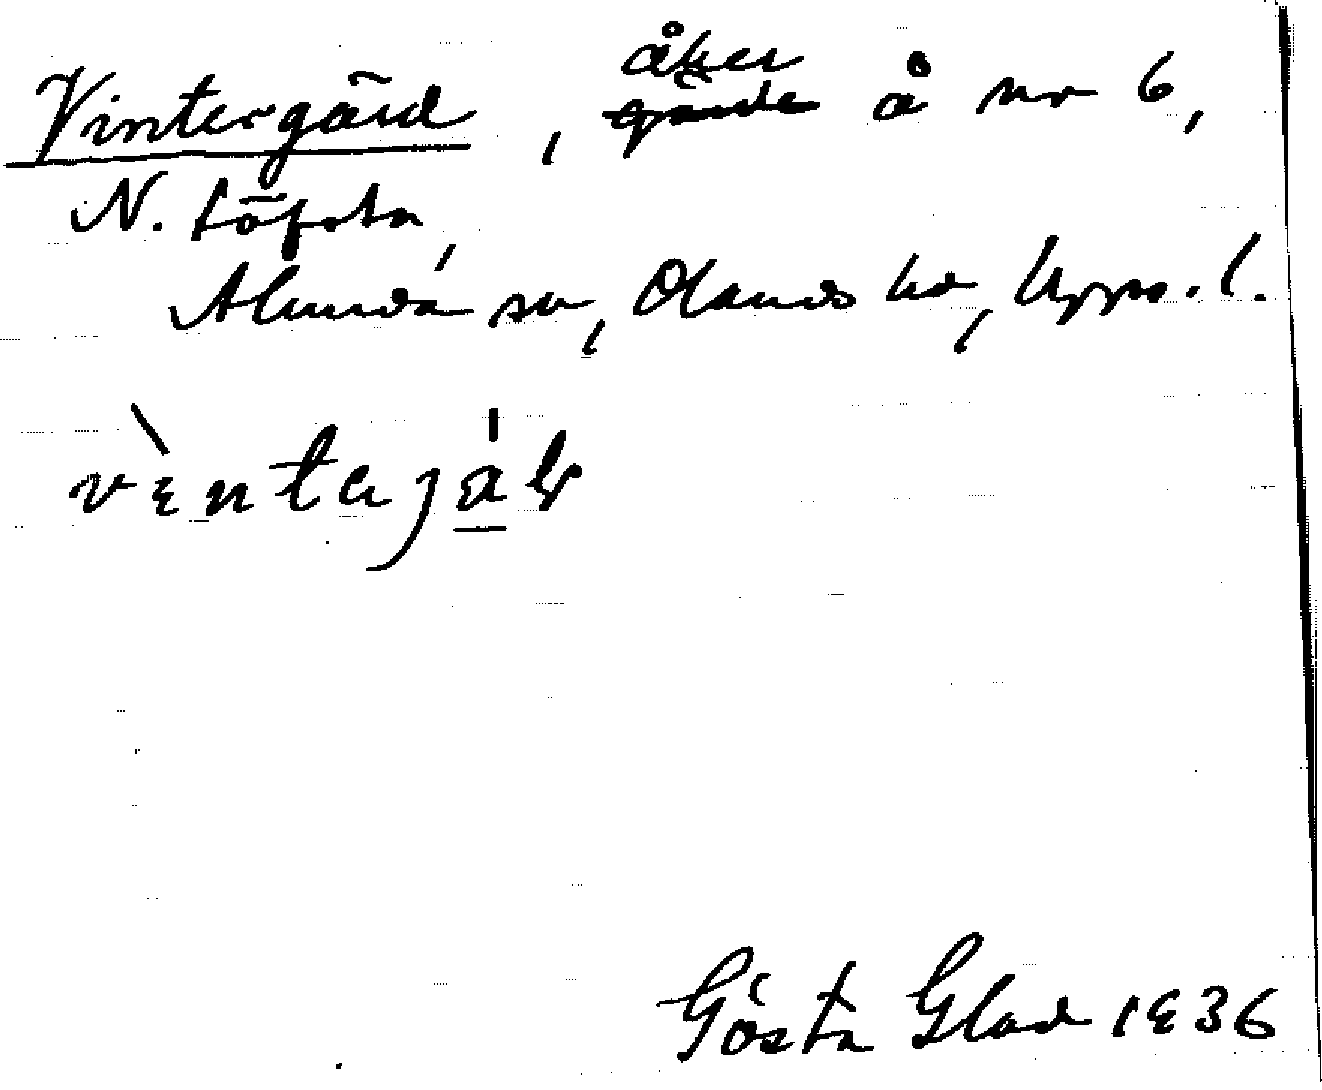 Vintergärd, åker å nr 6,
N. Löfsta,
Alunda sn, Olands hd, Upps. l.
vὲntajä̀ḷ
Gösta Glad 1936